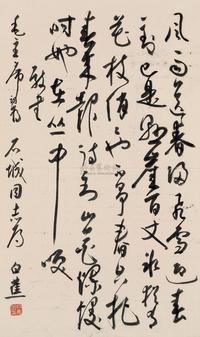 风雨送春归飞雪迎春
到已是悬崖百丈冰犹有
花枝俏俏也不争春只把
春来报待到山花烂漫
时她在丛中咲
毛主席词
石城同志属
白蕉